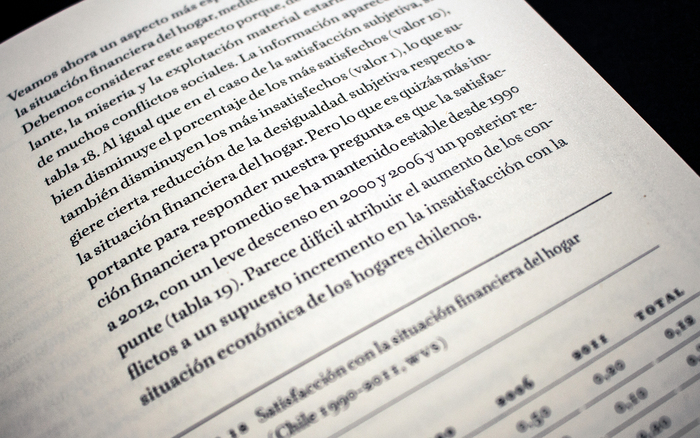 Veamos ahora un aspecto más
la situación financiera del hogar,
Debemos considerar este aspecto porque,
lante, la miseria y la explotación material
de muchos conflictos sociales. La información
tabla 18. Al igual que en el caso de la satisfacción subjetiva,
bien disminuye el porcentaje de los más satisfechos (valor 10),
también disminuyen los más insatisfechos (valor 1), lo que su-
giere cierta reducción de la desigualdad subjetiva respecto a
la situación financiera del hogar. Pero lo que es quizás más im-
portante para responder nuestra pregunta es que la satisfac-
ción financiera promedio se ha mantenido estable desde 1990
a 2012, con un leve descenso en 2000 y 2006 y un posterior re-
punte (tabla 19). Parece difícil atribuir el aumento de los con-
flictos a un supuesto incremento en la insatisfacción con la
situación económica de los hogares chilenos.
19 Satisfacción con la situación financiera del hogar
(Chile 1990-2011, WVS)
2006 2011 TOTAL
0,50 0,20 0,19